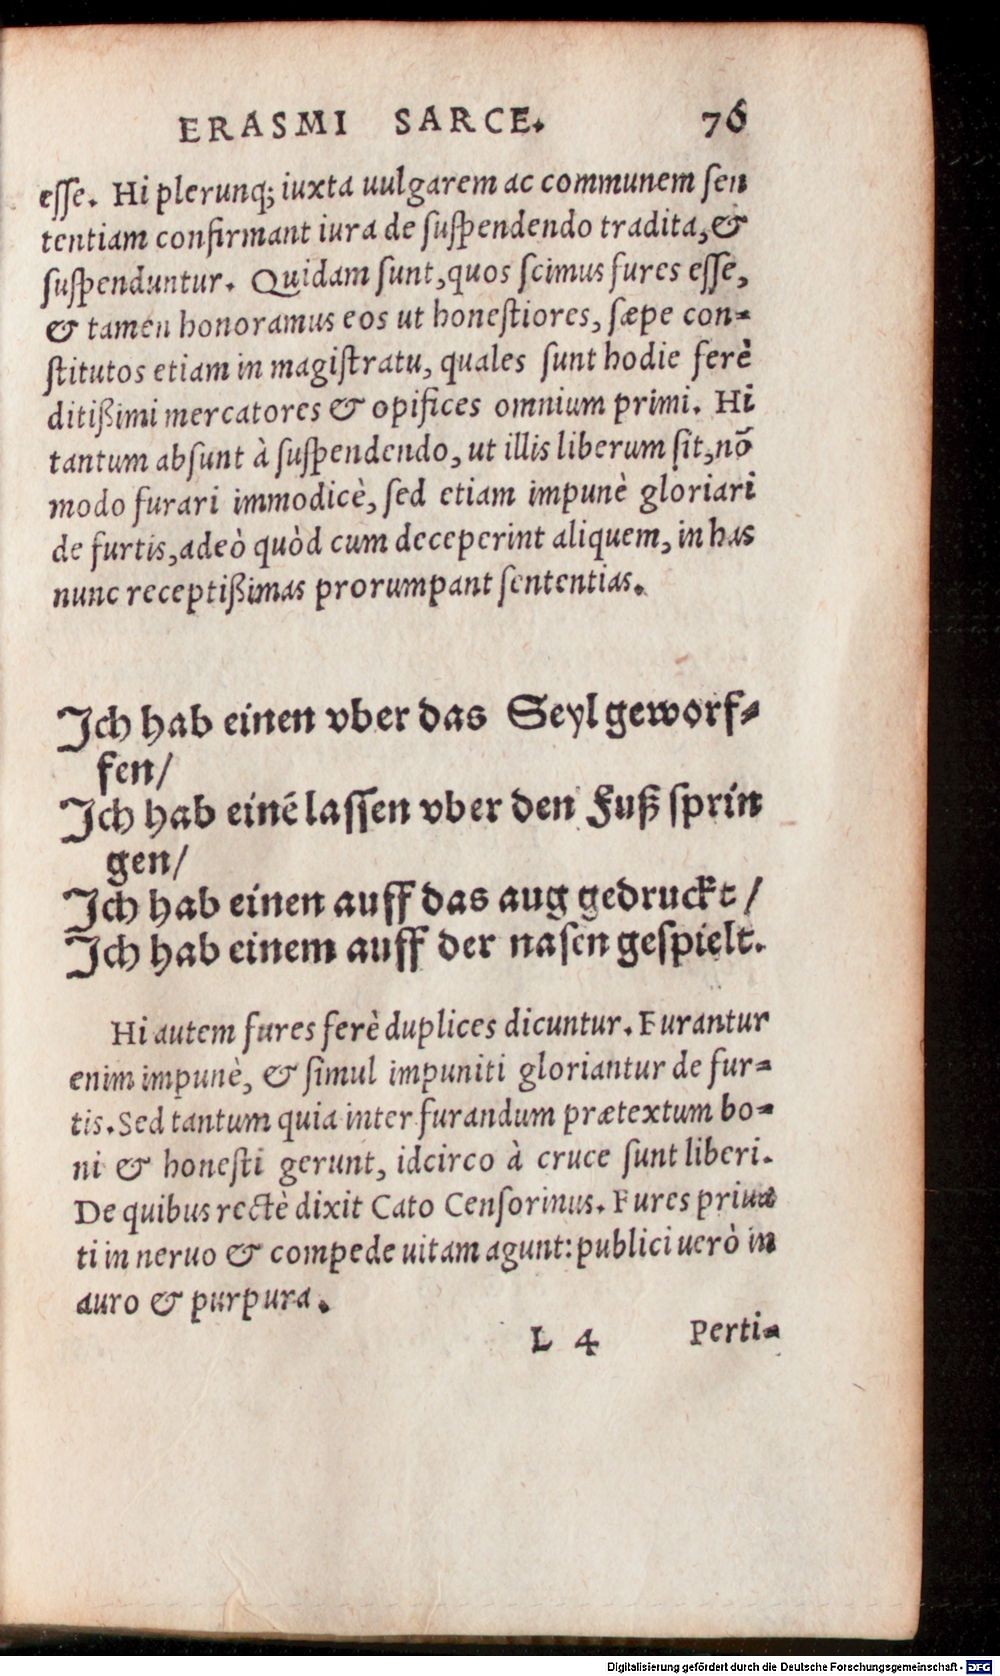 ERASMI SARCE. 76
esse. Hi plerunq; iuxta uulgarem ac communem sen
tentiam confirmant iura de suspendendo tradita, &
suspenduntur. Quidam sunt, quos scimus fures esse,
& tamen honoramus eos ut honestiores, sæpe con-
stitutos etiam in magistratu, quales sunt hodie ferè
ditißimi mercatores & opifices omnium primi. Hi
tantum absunt à suspendendo, ut illis liberum sit, nō
modo furari immodicè, sed etiam impunè gloriari
de furtis, adeò quòd cum deceperint aliquem, in has
nunc receptißimas prorumpant sententias.
Ich hab einen vber das Seyl geworf-
fen/
Ich hab einē lassen vber den Fuß sprin
gen/
Ich hab einen auff das aug gedruckt/
Ich hab einem auff der nasen gespielt.
Hi autem fures ferè duplices dicuntur. Furantur
enim impunè, & simul impuniti gloriantur de fur-
tis. Sed tantum quia inter furandum prætextum bo-
ni & honesti gerunt, idcirco à cruce sunt liberi.
De quibus rectè dixit Cato Censorinus. Fures priua
ti in neruo & compede uitam agunt: publici uerò in
auro & purpura.
L 4 Perti-
Digitalisierung gefördert durch die Deutsche Forschungsgemeinschaft - DFG